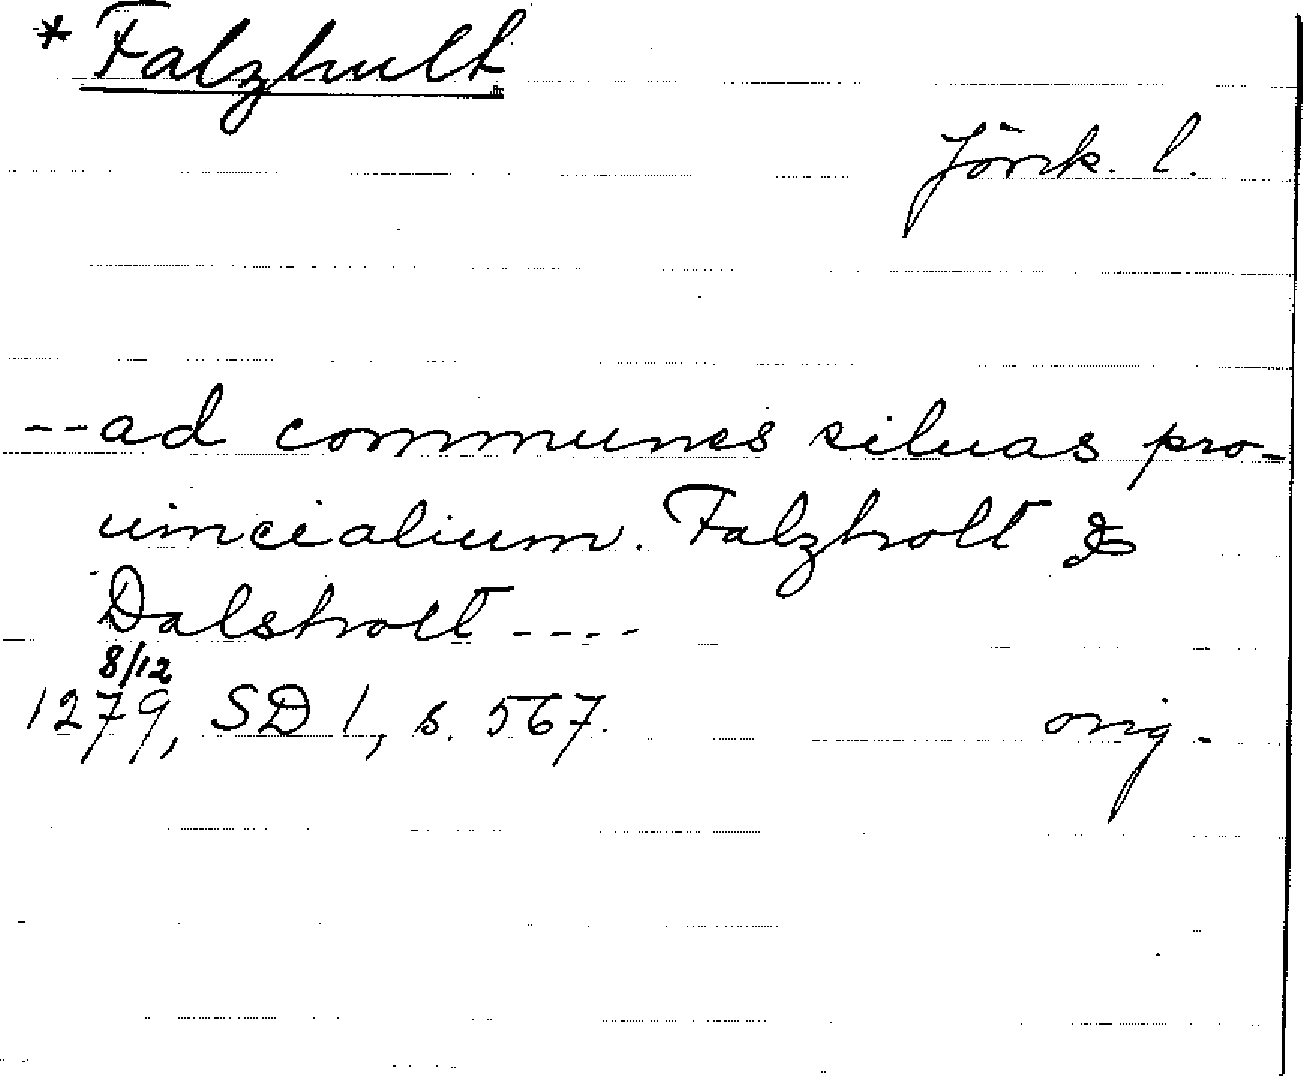 * Falzhult
Jönk. l.
-- ad communes siluas pro-
uincialium. Falzholt &
Dalsholt ----
8/12
1279, SD 1, s. 567.
orig.